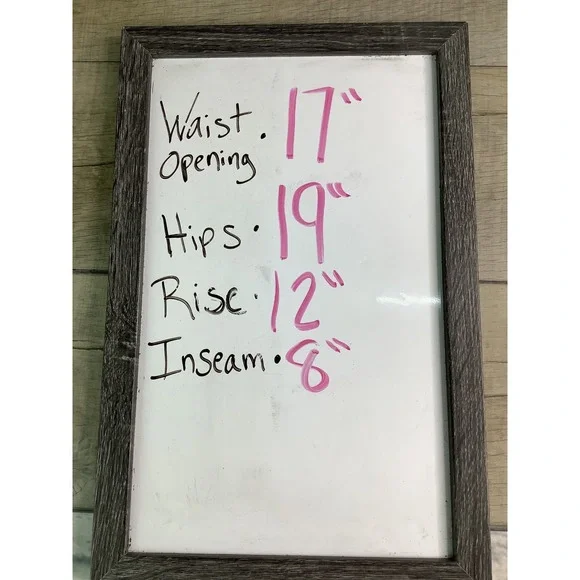 Waist . 17"
Opening
Hips . 19"
Rise . 12"
Inseam . 8"